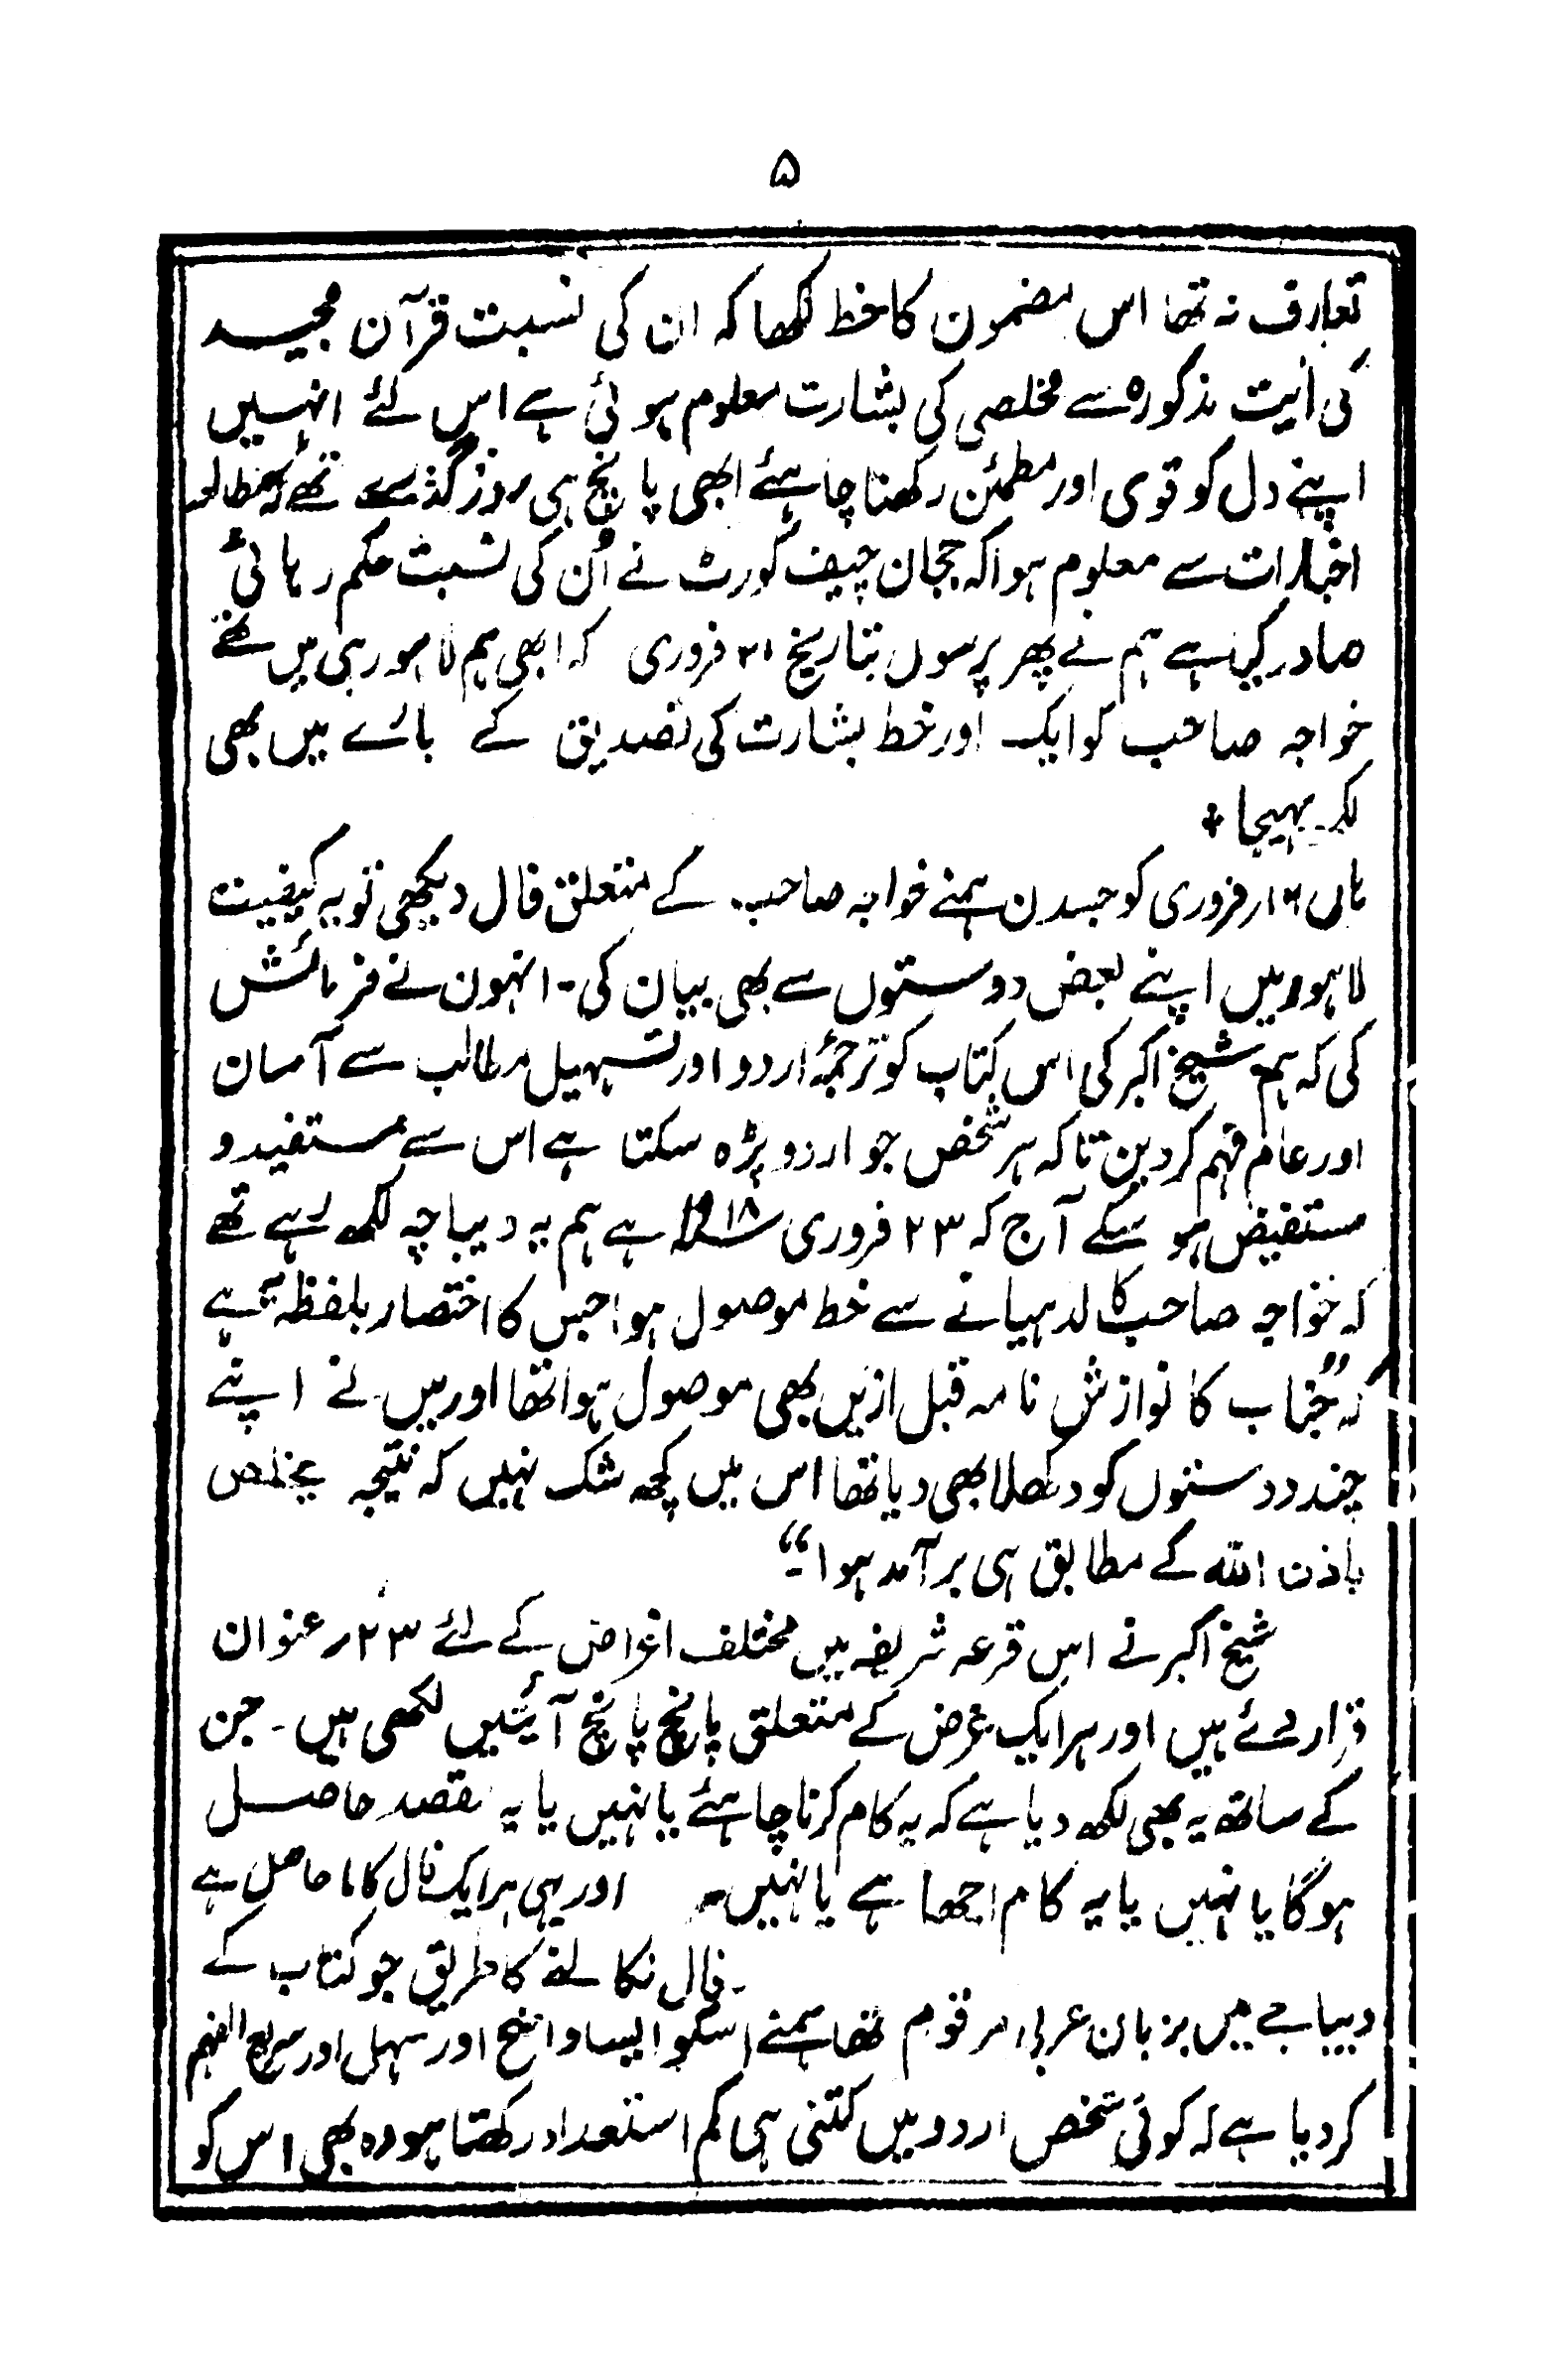 ۵
تعارف نہ تھا اس مضمون کا خط لکھا کہ ان کی نسبت قرآن مجید
کی آیت مذکورہ سے مخلصی کی بشارت معلوم ہوئی ہے اس لئے انہیں
اپنے دل کو قوی اور مطمئن رکھنا چاہئے ابھی پانچ ہی روز گذرے تھے کہ مطالعہ
اخبارات سے معلوم ہوا کہ ججان چیف کورٹ نے اُن کی نسبت حکم رہائی
صادر کیا ہے ہم نے پھر پرسوں بتاریخ ۲۱ فروری کہ ابھی ہم لاہور ہی میں تھے
خواجہ صاحب کو ایک اور خط بشارت کی تصدیق کے بارے میں بھی
لکھ بھیجا +
ہاں ۱۶ر فروری کو جسدن ہمنے خواجہ صاحب کے متعلق فال دیکھی تو یہ کیفیت
لاہور میں اپنے بعض دوستوں سے بھی بیان کی۔ انہون نے فرمائش
کی کہ ہم شیخ اکبر کی اس کتاب کو ترجمۂ اردو اور تسہیل مطالب سے آسان
اور عام فہم کر دین تاکہ ہر شخص جو اردو پڑہ سکتا ہے اس سے مستفید و
مستفیض ہو سکے آج کہ ۲۳ فروری ۱۹۱۸ء ہے ہم یہ دیباچہ لکھ رہے تھے
کہ خواجہ صاحب کا لدہیانے سے خط موصول ہوا جس کا اختصار بلفظہ یہ ہے
کہ ”جناب کا نوازش نامہ قبل ازیں بھی موصول ہوا تھا اور میں نے اپنے
چند دوستوں کو دکھلا بھی دیا تھا اس میں کچھ شک نہیں کہ نتیجہ یخلص
باذن اللہ کے مطابق ہی برآمد ہوا۔“
شیخ اکبر نے اس قرعہ شریفہ میں مختلف اغراض کے لئے ۲۳ر عنوان
قرار دئے ہیں اور ہر ایک غرض کے متعلق پانچ پانچ آئتیں لکھی ہیں۔ جن
کے ساتھ یہ بھی لکھ دیا ہے کہ یہ کام کرنا چاہئے یا نہیں یا یہ مقصد حاصل
ہوگا یا نہیں یا یہ کام اچھا ہے یا نہیں۔ اور یہی ہر ایک فال کا ماحاصل ہے
۔ فال نکالنے کا طریق جو کتاب کے
دیباچے میں بزبان عربی مرقوم تھا ہمنے اسکو ایسا واضح اور سہل اور سریع الفہم
کر دیا ہے کہ کوئی شخص اردو میں کتنی ہی کم استعداد رکھتا ہو وہ بھی اس کو